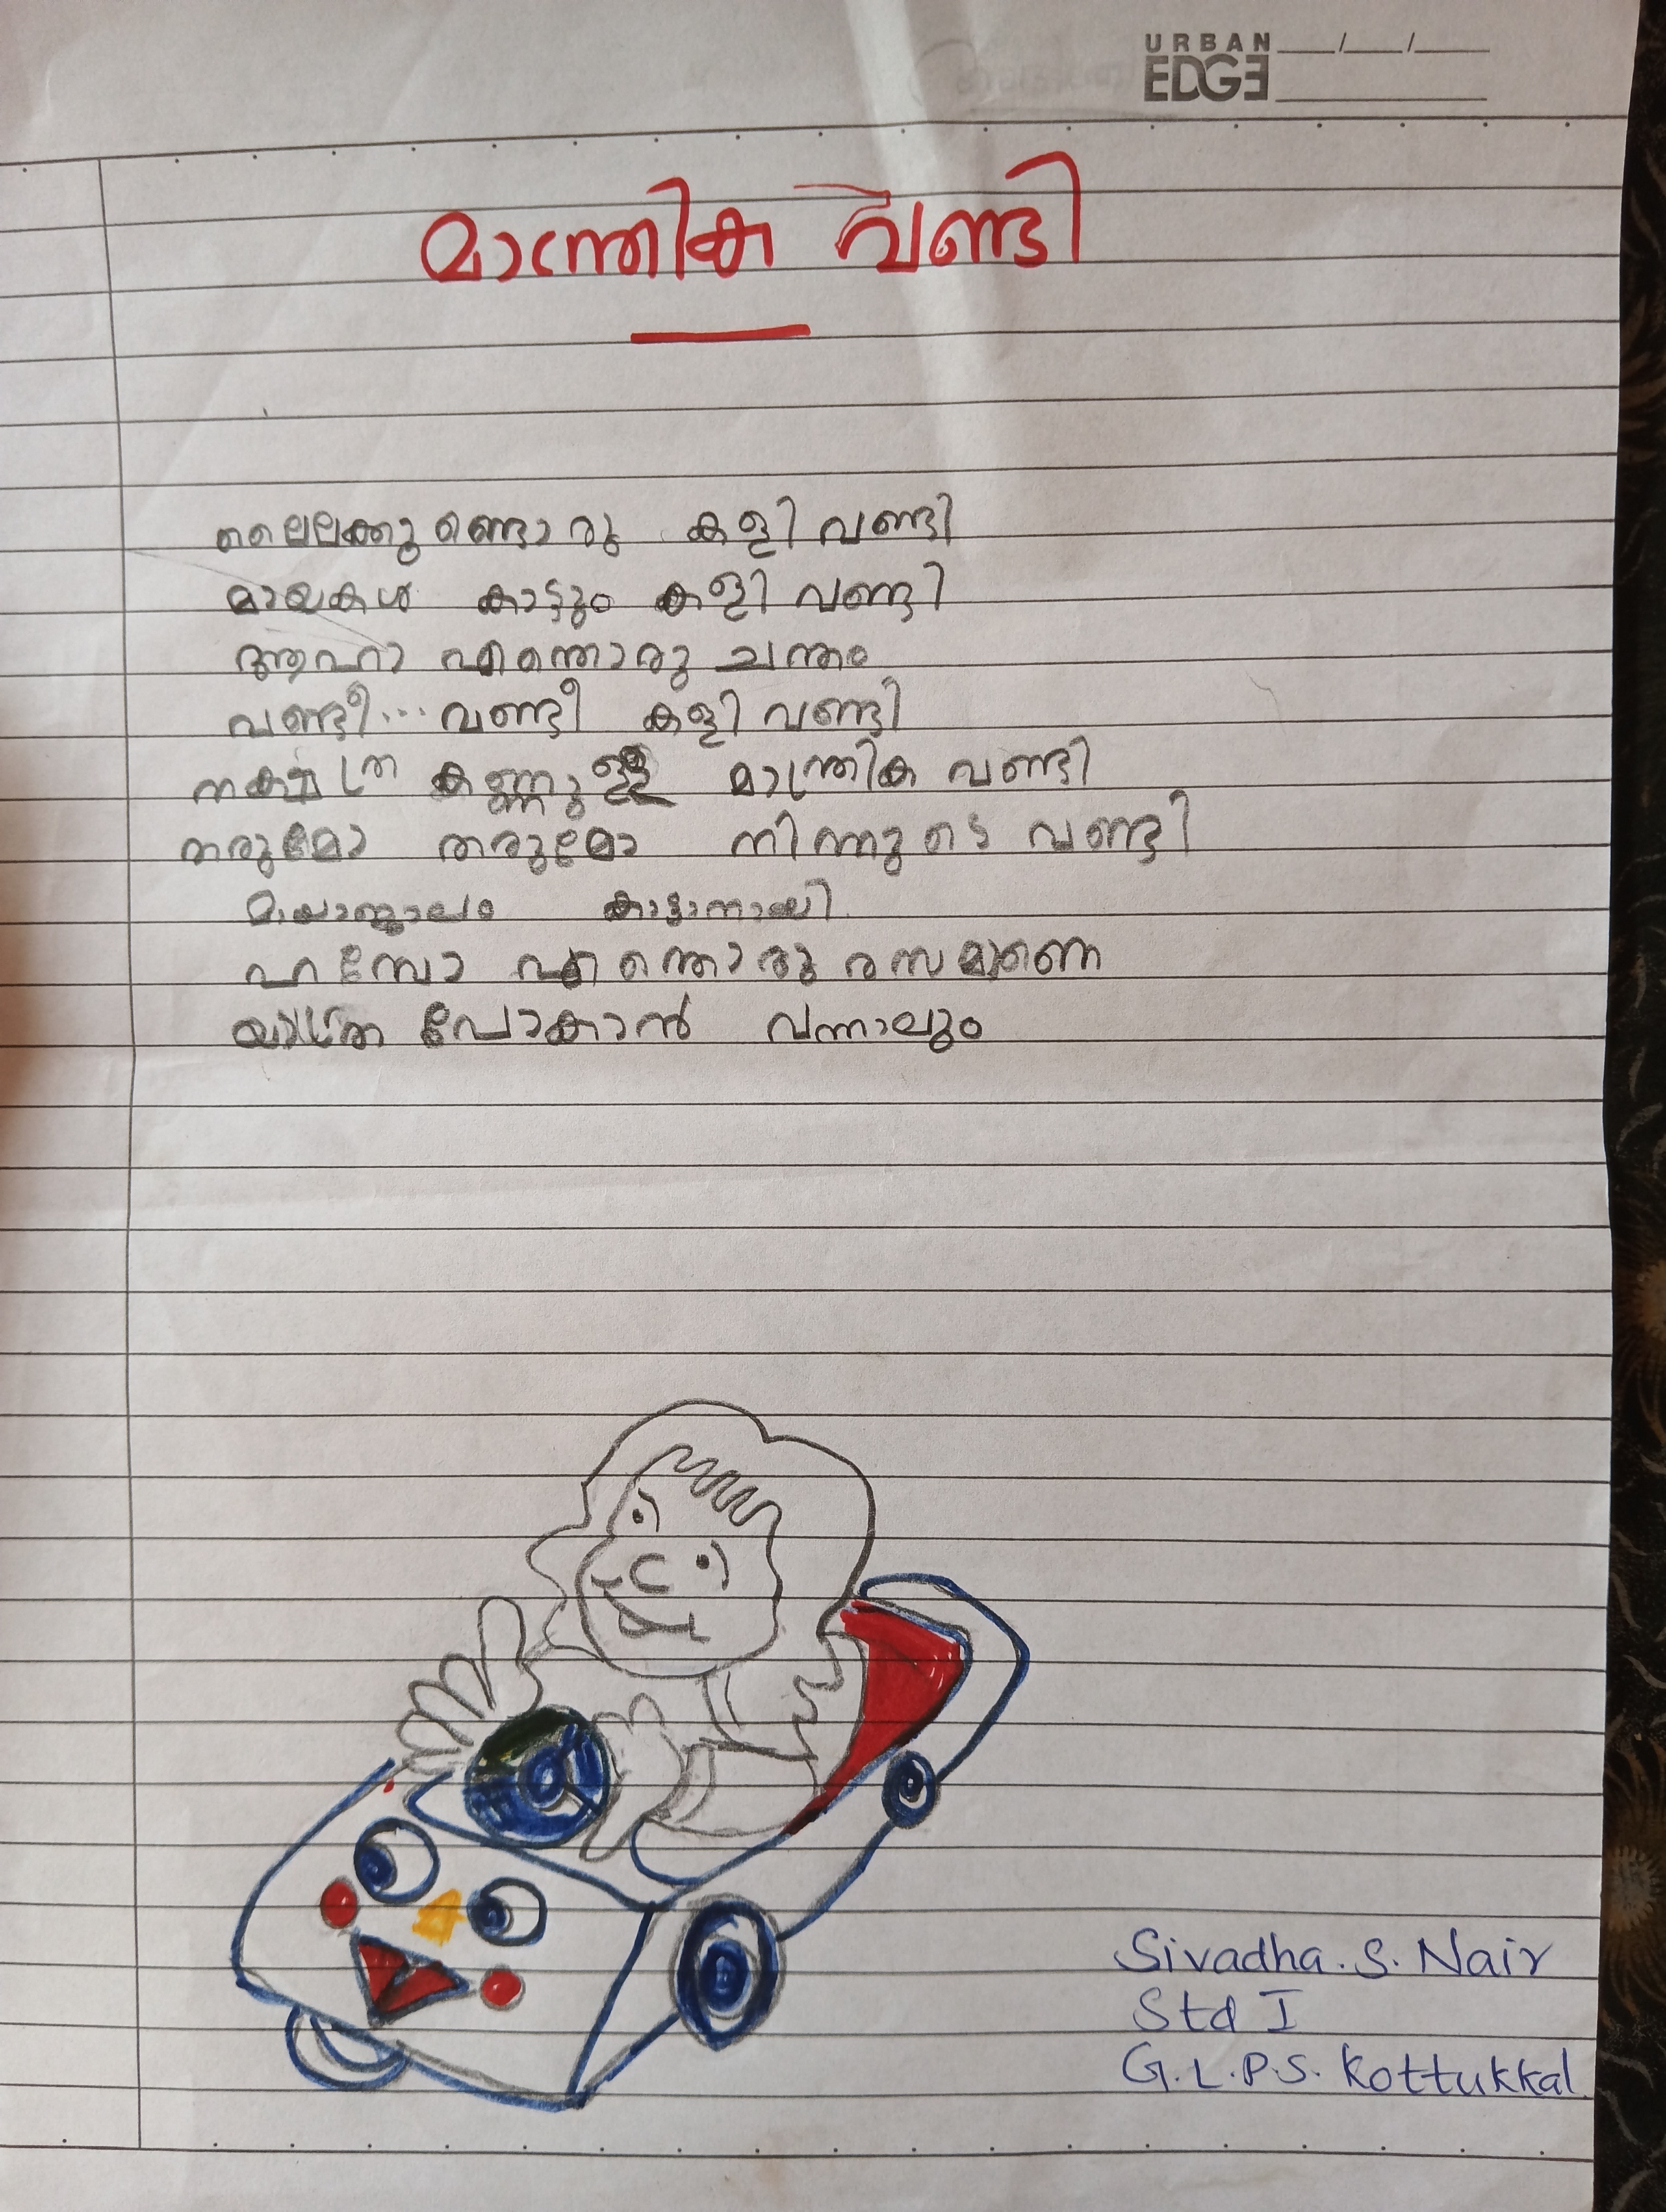 URBAN
EDGE
മാന്ത്രിക വണ്ടി
ലൈലക്കുണ്ടൊരു കളി വണ്ടി
മായകൾ കാട്ടും കളി വണ്ടി
ആഹാ എന്തൊരു ചന്തം
വണ്ടീ... വണ്ടീ കളി വണ്ടി
നക്ഷത്ര കണ്ണുള്ള മാന്ത്രിക വണ്ടി
തരുമോ തരുമോ നിന്നുടെ വണ്ടി
കാട്ടാനായി
ഹമ്പോ എന്തൊരു രസമാണെ
യാത്ര പോകാൻ വന്നാലും
Sivadha. S. Nair
Std I
G.L.P.S. Kottukkal